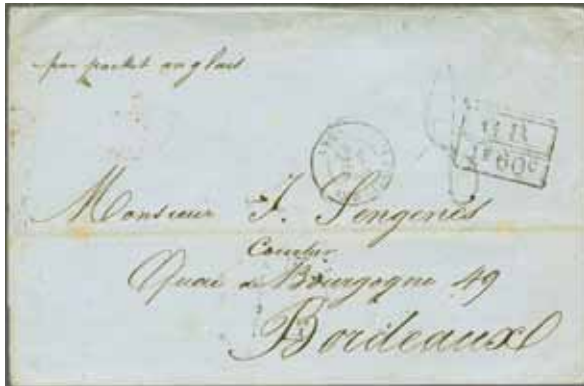 par packet anglais
GB
1F60c
Monsieur J. Sengenès
Courtier
Quai de Bourgogne 49
Bordeaux